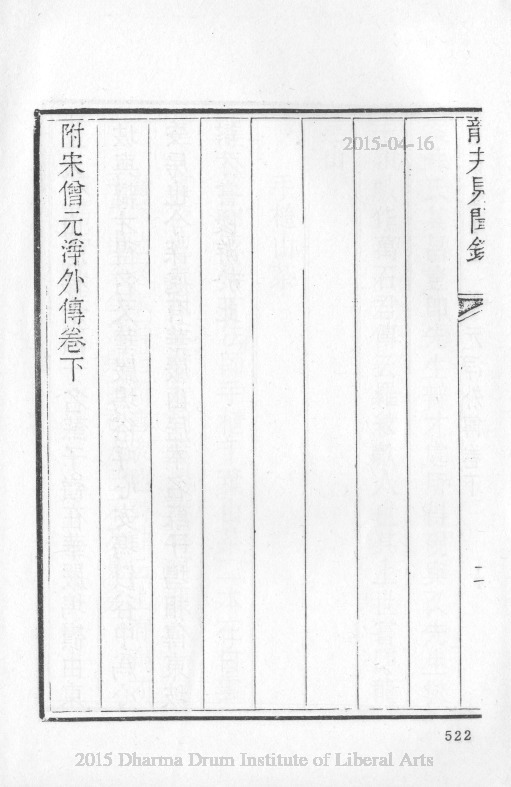 2015-04-16
龍井見聞錄
二
附宋僧元淨外傳卷下
522
2015 Dharma Drum Institute of Liberal Arts